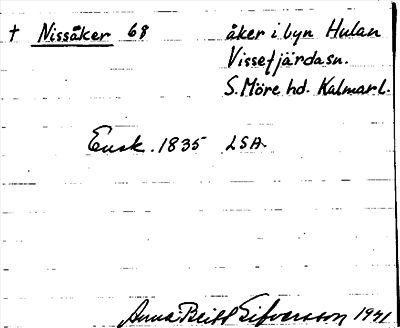 † Nissåker 68 åker i byn Hulan
Vissefjärda sn.
S. Möre hd. Kalmar l.
Ensk. 1835 LSA.
Anna-Britt Sifversson 1971